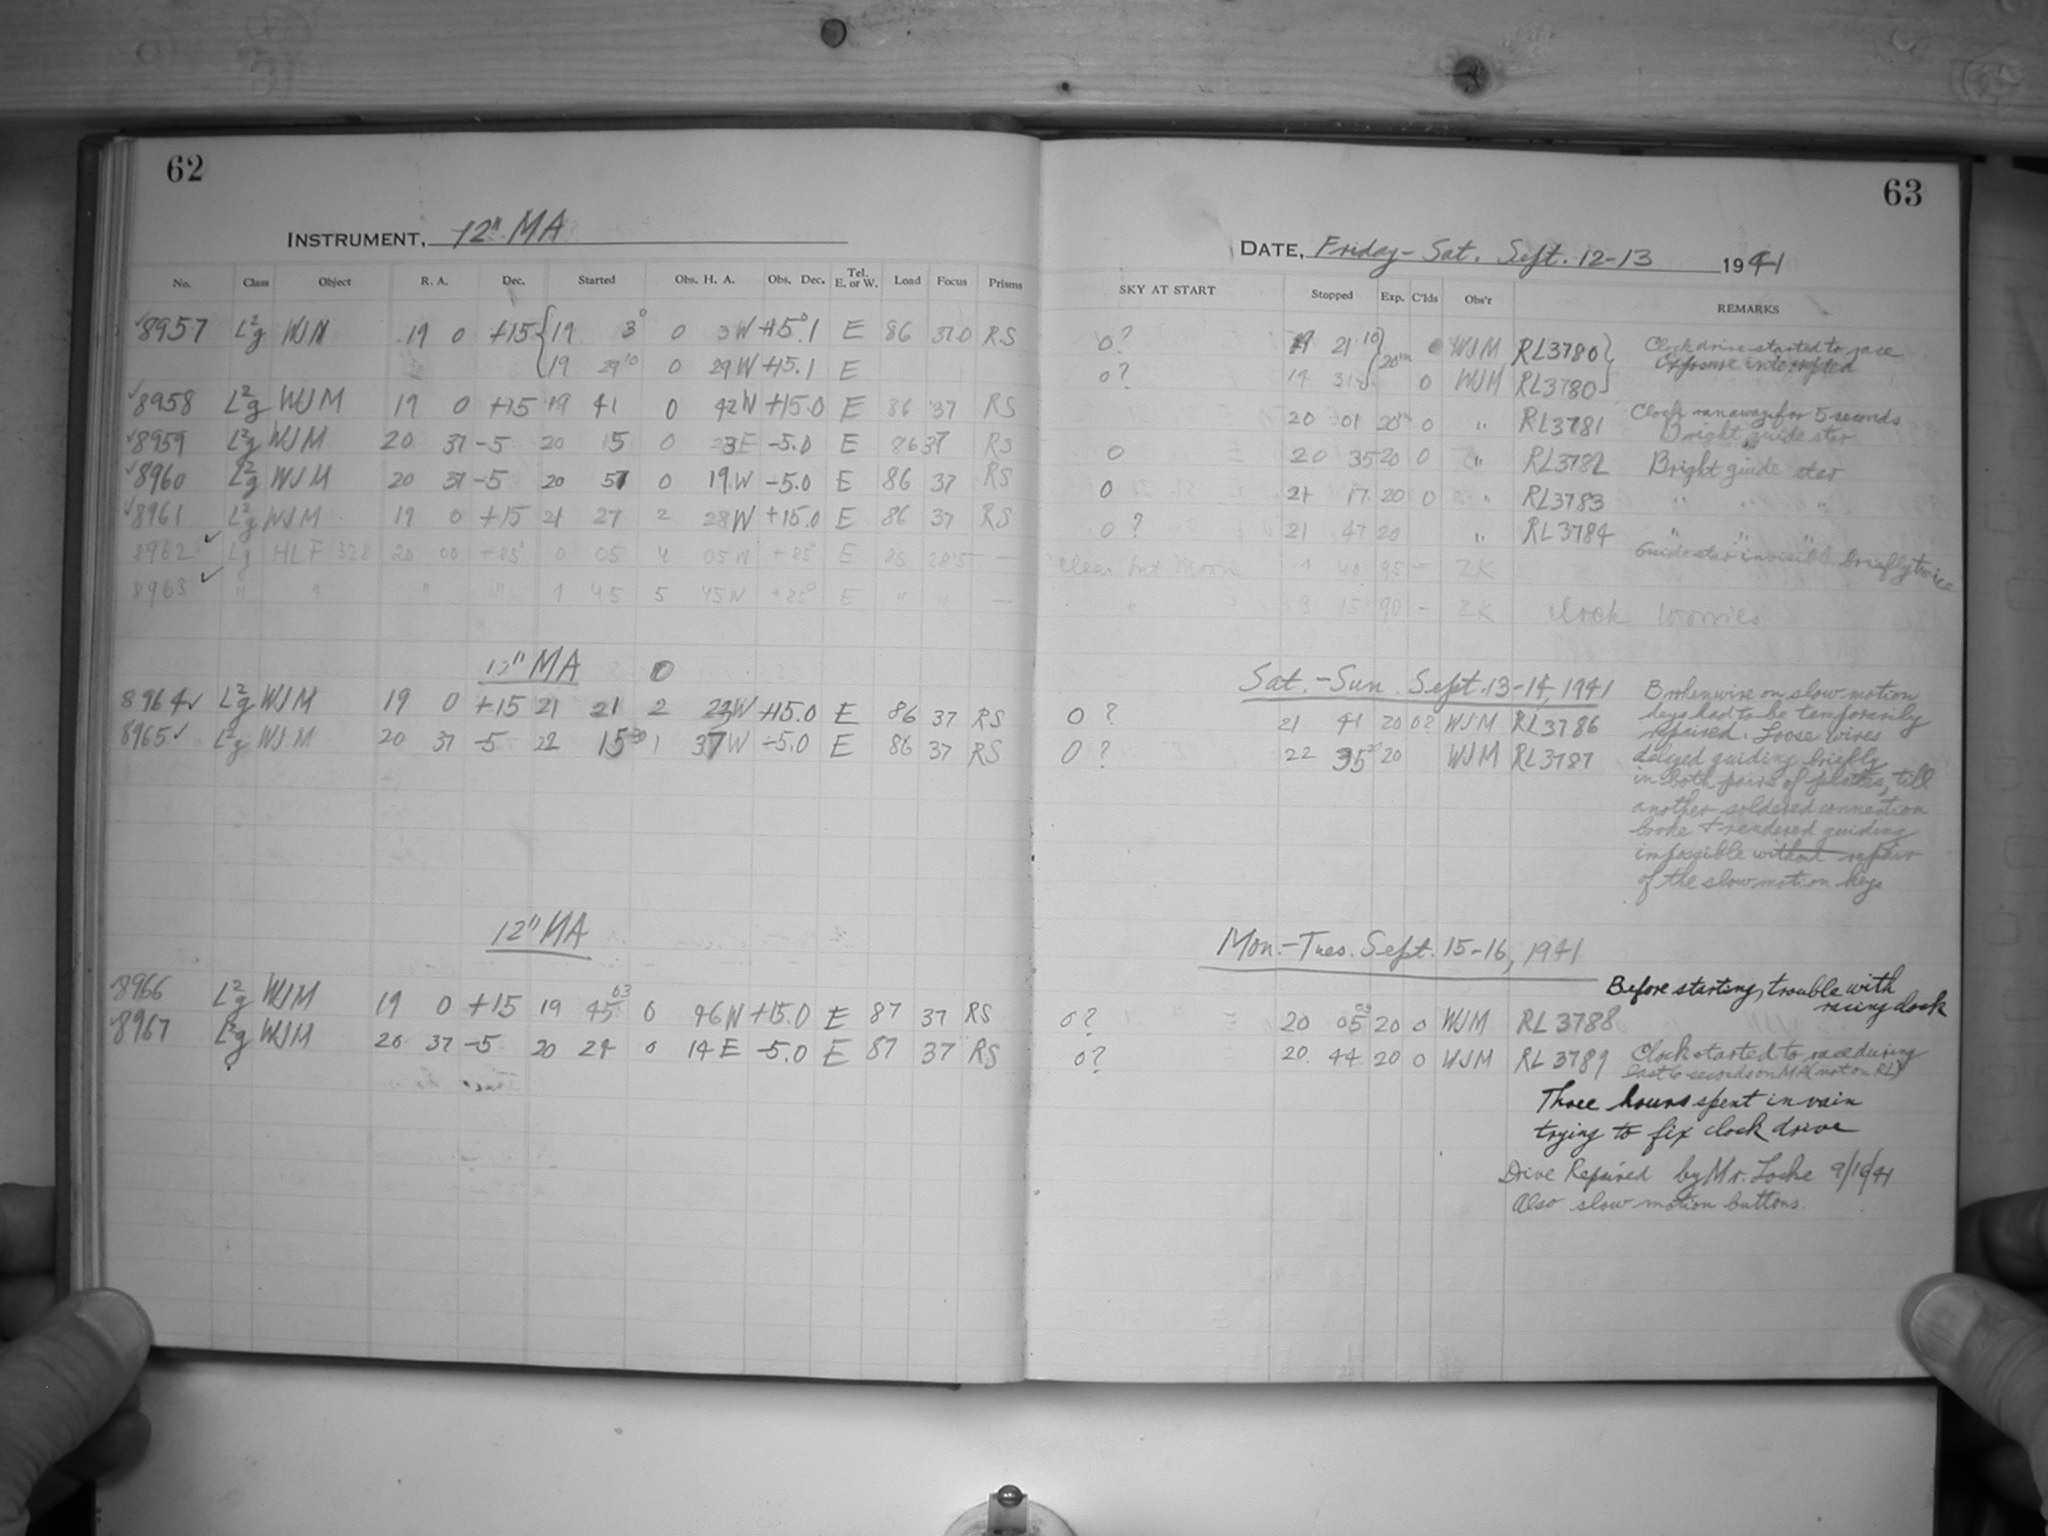 62
INSTRUMENT, 12" MA
No. Class Object R. A. Dec. Started Obs. H. A. Obs. Dec. Tel. E. or W. Load Focus Prisms
8957 L²g WJM 19 0 +15 19 3 0 0 3W +15°.1 E 86 37.0 RS
19 29 10 0 29W +15.1 E
8958 L²g WJM 19 0 +15 19 41 0 42W +15.0 E 86 37 RS
8959 L²g WJM 20 37 -5 20 15 0 23E -5.0 E 86 37 RS
8960 L²g WJM 20 37 -5 20 57 0 19W -5.0 E 86 37 RS
8961 L²g WJM 19 0 +15 21 27 2 28W +15.0 E 86 37 RS
8962 Lg HLF 328 20 00 +85° 0 05 4 05W +85° E 86 28.5 —
8963 " " " " 1 45 5 45W +85° E " " —
12" MA
8964 L²g WJM 19 0 +15 21 21 2 23W +15.0 E 86 37 RS
8965 L²g WJM 20 37 -5 22 15 1 37W -5.0 E 86 37 RS
12" MA
8966 L²g WJM 19 0 +15 19 45 03 0 46W +15.0 E 87 37 RS
8967 L²g WJM 20 37 -5 20 24 0 14E -5.0 E 87 37 RS
63
DATE, Friday - Sat. Sept. 12-13 1941
SKY AT START Stopped Exp. C'lds Obs'r REMARKS
0? 19 21 10 20m 0 WJM RL3780 Clock drive started to race
Exposure interrupted
0? 19 31 0 WJM RL3780
20 01 20m 0 " RL3781 Clock ran away for 5 seconds
Bright guide star
0 20 35 20 0 " RL3782 Bright guide star
0 21 17 20 0 " RL3783 " " "
0? 21 47 20 " RL3784 " " "
Guide star invisible briefly twice
Clear but Moon 1 40 95 - ZK
" 3 15 90 - ZK clock worries
Sat. - Sun Sept. 13-14, 1941
0 ? 21 41 20 0? WJM RL3786
0 ? 22 35 20 WJM RL3787
Broken wire on slow motion
keys had to be temporarily
repaired. Loose wires
delayed guiding briefly
in both pairs of plates, till
another soldered connection
broke & rendered guiding
impossible without repair
of the slow motion keys
Mon. - Tues. Sept. 15-16, 1941
Before starting, trouble with
racing clock
0? 20 05 03 20 0 WJM RL 3788
0? 20 44 20 0 WJM RL 3789 Clock started to race during
last 6 seconds on MA (not on RL)
Three hours spent in vain
trying to fix clock drive
Drive Repaired by Mr. Locke 9/16/41
Also slow motion buttons.